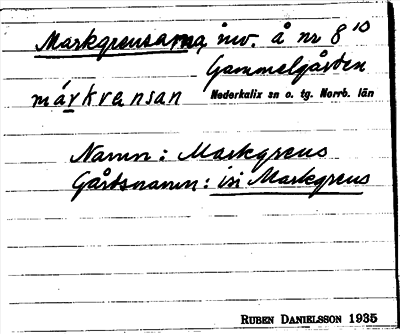 Markgreusarna inv. å nr 8¹⁰
Gammelgården
márkvensan Nederkalix sn o. tg. Norrb. län
Namn : Markgreus
Gårdsnamn : isi Markgreus
RUBEN DANIELSSON 1935